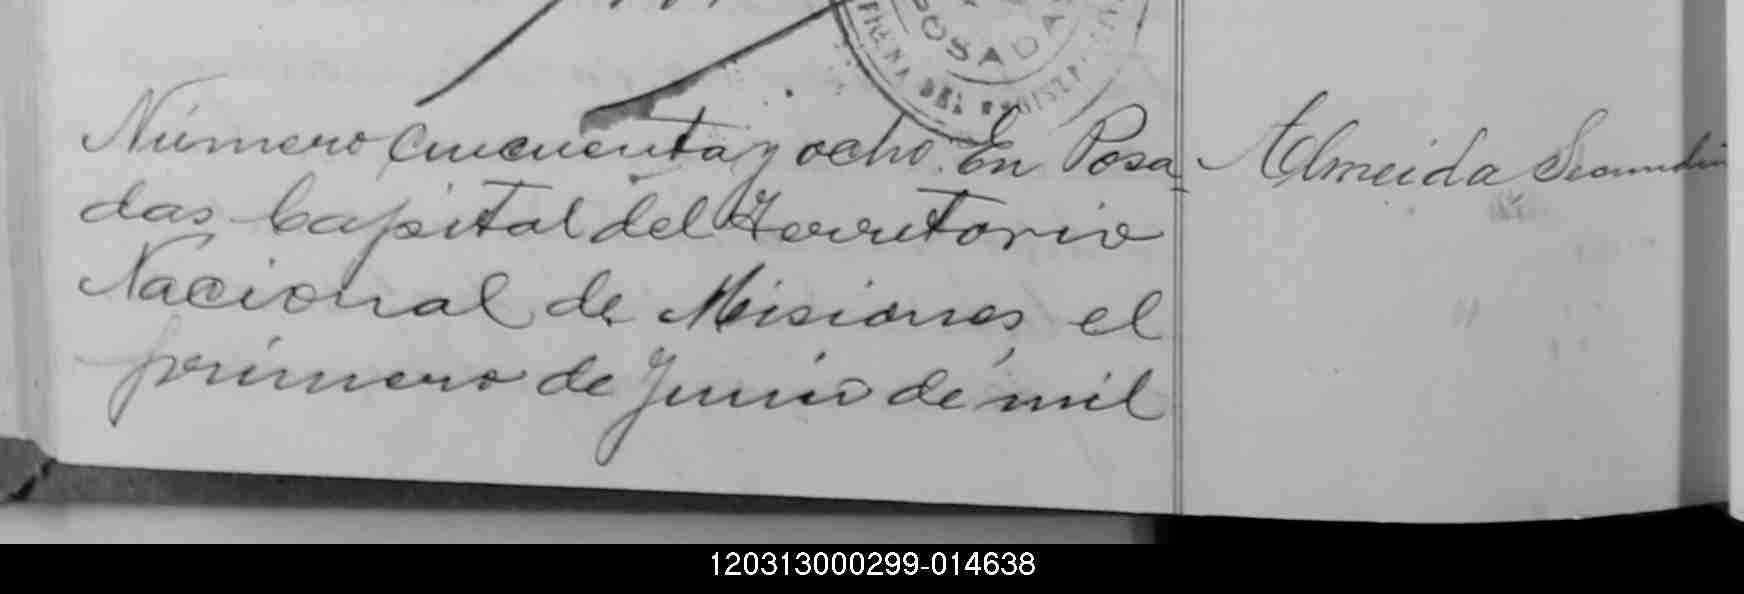 POSADAS
Número cincuenta y ocho. En Posa
das Capital del Territorio
Nacional de Misiones, el
primero de Junio de mil
Almeida
120313000299-014638